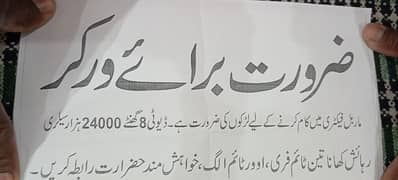 ضرورت برائے ورکر
ماربل فیکٹری میں کام کرنے کے لیے لڑکوں کی ضرورت ہے۔ ڈیوٹی 8 گھنٹے 24000 ہزار سیلری
رہائش کھانا تین ٹائم فری، اوور ٹائم الگ، خواہش مند حضرارت رابطہ کریں۔